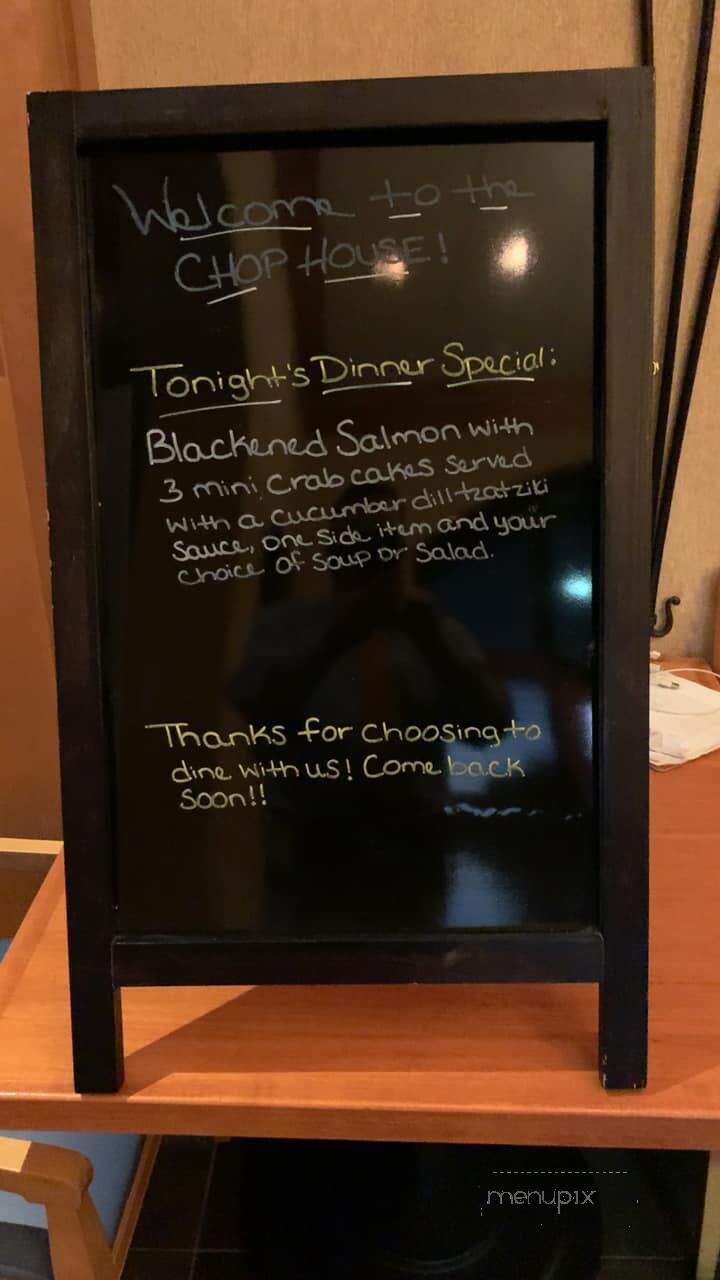 Welcome to the
CHOP HOUSE!
Tonight's Dinner Special:
Blackened Salmon with
3 mini crab cakes served
with a cucumber dill tzatziki
sauce, one side item and your
choice of soup or salad.
Thanks for choosing to
dine with us! Come back
soon!!
menupix